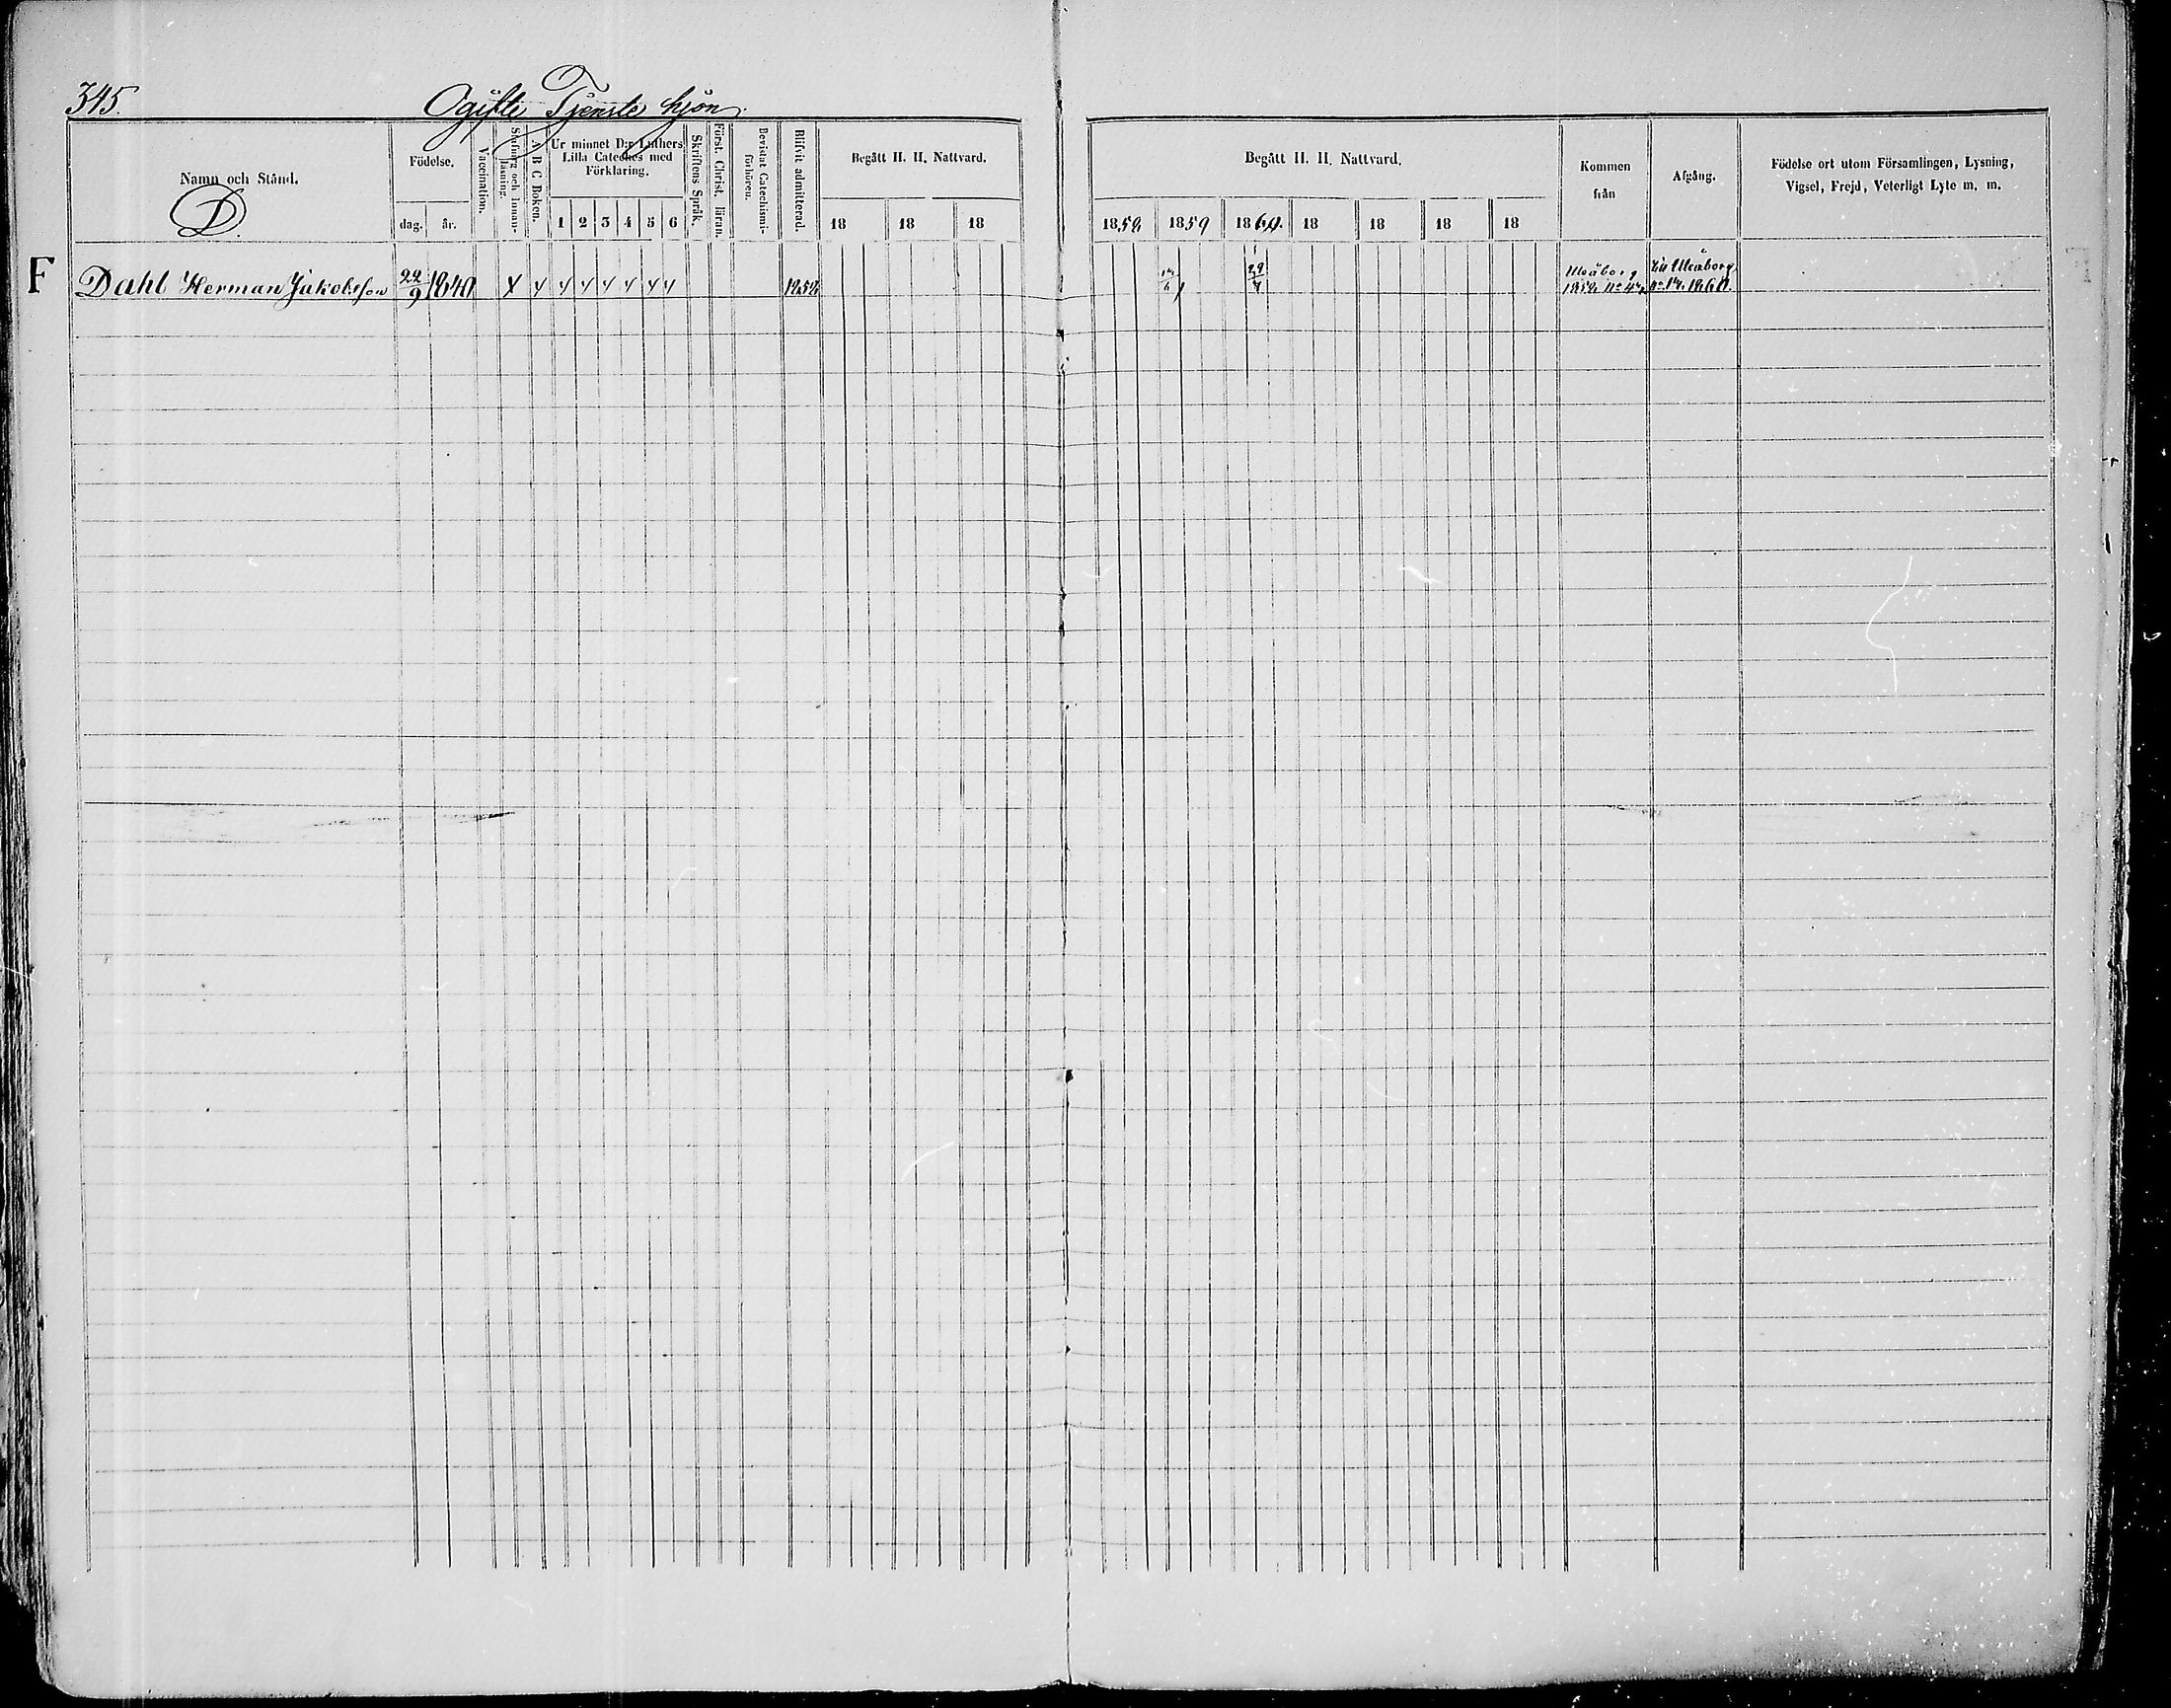 345.
Ogifte Tjenste hjon.
Namn och Stånd.
D.
Födelse.
dag. år.
Vaccination.
Stafning och Innan-
läsning.
A B C Boken.
Ur minnet D:r Luthers
Lilla Cateches med
Förklaring.
1 2 3 4 5 6
Skriftens Språk.
Först. Christ. läran.
Bevistat Catechismi-
förhören.
Blifvit admitterad.
Begått H. H. Nattvard.
18 18 18
Begått H. H. Nattvard.
1858 1859 1860. 18 18 18 18
Kommen
från
Afgång.
Födelse ort utom Församlingen, Lysning,
Vigsel, Frejd, Veterligt Lyte m. m.
F
Dahl Herman Jakobsson 22/9 1840 1858 29/7
Uleåborg
1858 No
Till Uleåborg
No 1860.